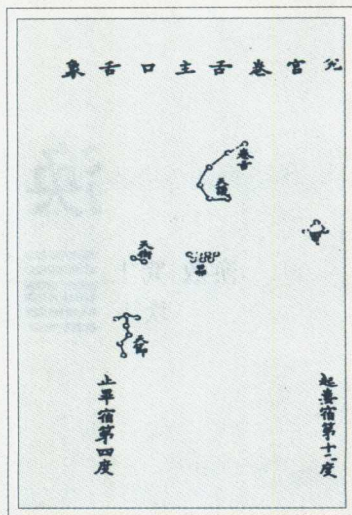 兌宮卷舌主口舌象
卷舌
天讒
昴
天街
天節
起婁宿第十二度
止畢宿第四度